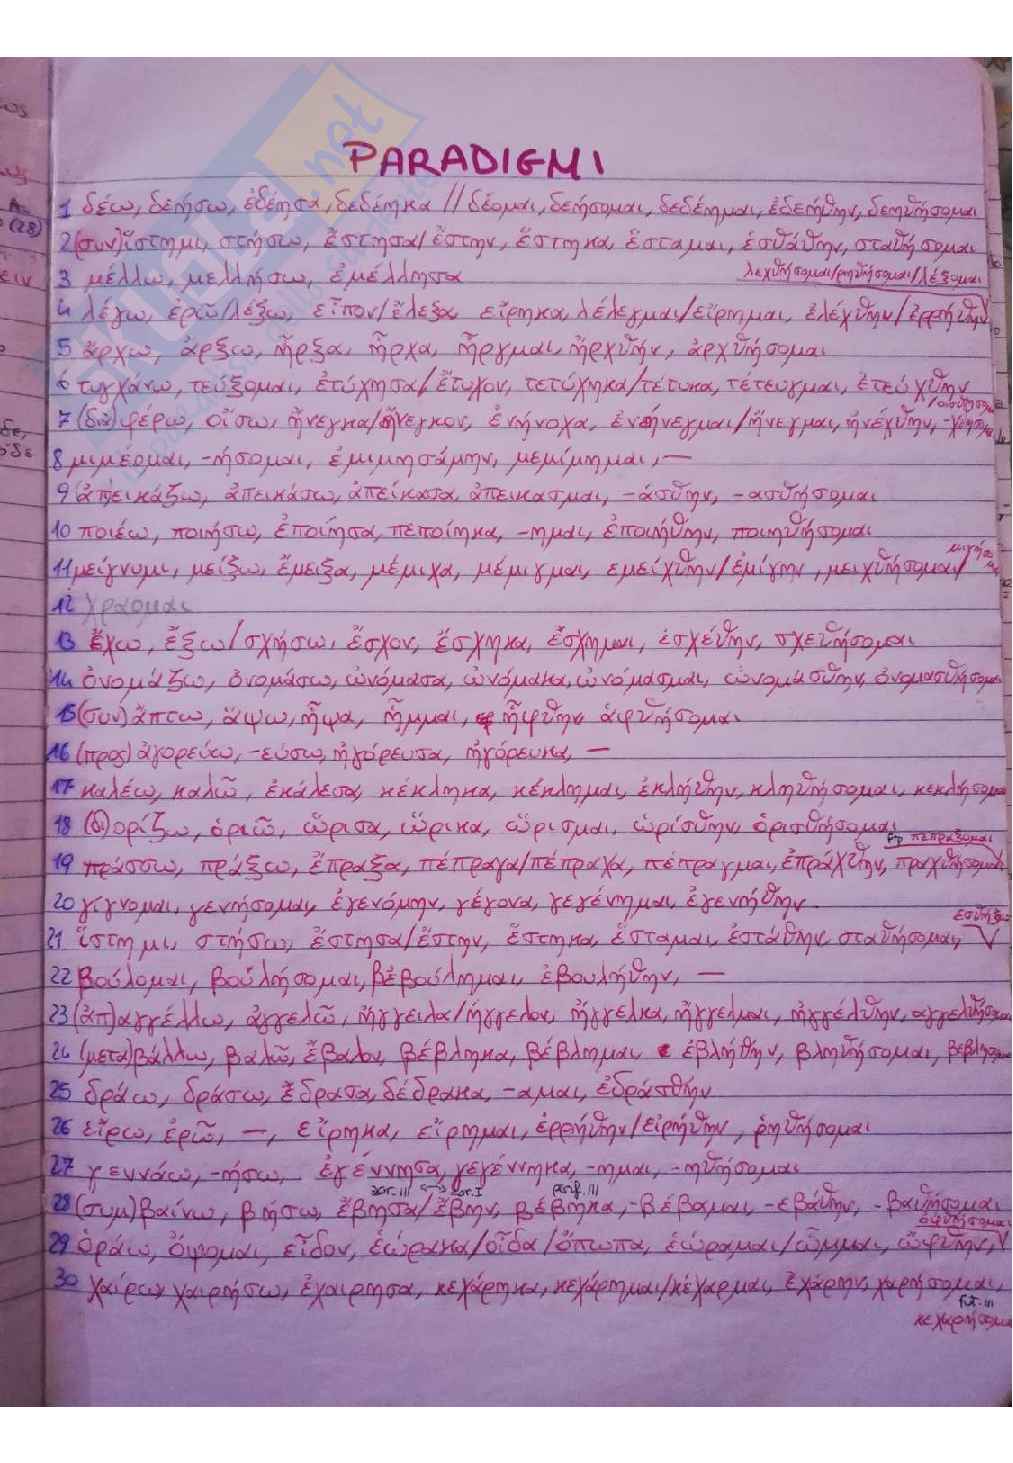 PARADIGMI
1 δέω, δεήσω, ἐδέησα, δεδέηκα // δέομαι, δεήσομαι, δεδέημαι, ἐδεήθην, δεηθήσομαι
2 (συν)ἵστημι, στήσω, ἔστησα/ἔστην, ἕστηκα, ἕσταμαι, ἐστάθην, σταθήσομαι
3 μέλλω, μελλήσω, ἐμέλλησα
λεχθήσομαι/ρηθήσομαι/λέξομαι
4 λέγω, ἐρῶ/λέξω, εἶπον/ἔλεξα εἴρηκα, λέλεγμαι/εἴρημαι, ἐλέχθην/ἐρρήθην
5 ἄρχω, ἄρξω, ἦρξα, ἦρχα, ἦργμαι, ἤρχθην, ἀρχθήσομαι
6 τυγχάνω, τεύξομαι, ἐτύχησα/ἔτυχον, τετύχηκα/τέτυκα, τέτευγμαι, ἐτεύχθην
7 (δια)φέρω, οἴσω, ἤνεγκα/ἤνεγκον, ἐνήνοχα, ἐνήνεγμαι/ἤνεγμαι, ἠνέχθην,
8 μιμέομαι, -ήσομαι, ἐμιμησάμην, μεμίμημαι, —
9 ἀπεικάζω, ἀπεικάσω, ἀπείκασα, ἀπείκασμαι, -άσθην, -ασθήσομαι
10 ποιέω, ποιήσω, ἐποίησα, πεποίηκα, -ημαι, ἐποιήθην, ποιηθήσομαι
11 μείγνυμι, μείξω, ἔμειξα, μέμιχα, μέμιγμαι, εμείχθην/ἐμίγην, μειχθήσομαι/
12 χράομαι
13 ἔχω, ἕξω/σχήσω, ἔσχον, ἔσχηκα, ἔσχημαι, ἐσχέθην, σχεθήσομαι
14 ὀνομάζω, ὀνομάσω, ὠνόμασα, ὠνόμακα, ὠνόμασμαι, ὠνομάσθην, ὀνομασθήσομαι
15 (συν)ἅπτω, ἅψω, ἧψα, ἧμμαι, ἥφθην ἁφθήσομαι
16 (προς)ἀγορεύω, -εύσω, ἠγόρευσα, ἠγόρευκα, —
17 καλέω, καλῶ, ἐκάλεσα, κέκληκα, κέκλημαι, ἐκλήθην, κληθήσομαι, κεκλήσομαι
18 (δι)ορίζω, ὁριῶ, ὥρισα, ὥρικα, ὥρισμαι, ὡρίσθην, ὁρισθήσομαι
πεπράξομαι
19 πράσσω, πράξω, ἔπραξα, πέπραγα/πέπραχα, πέπραγμαι, ἐπράχθην, πραχθήσομαι
20 γίγνομαι, γενήσομαι, ἐγενόμην, γέγονα, γεγένημαι, ἐγενήθην
21 ἵστημι, στήσω, ἔστησα/ἔστην, ἕστηκα, ἕσταμαι, ἐστάθην, σταθήσομαι,
22 βούλομαι, βουλήσομαι, βεβούλημαι, ἐβουλήθην, —
23 (ἀπ)αγγέλλω, ἀγγελῶ, ἤγγειλα/ἤγγελον, ἤγγελκα, ἤγγελμαι, ἠγγέλθην, αγγελθήσομαι
24 (μετα)βάλλω, βαλῶ, ἔβαλον, βέβληκα, βέβλημαι ἐβλήθην, βληθήσομαι, βεβλήσομαι
25 δράω, δράσω, ἔδρασα, δέδρακα, -αμαι, ἐδράσθην
26 εἴρω, ἐρῶ, —, εἴρηκα, εἴρημαι, ἐρρήθην/εἰρήθην, ῥηθήσομαι
27 γεννάω, -ήσω, ἐγέννησα, γεγέννηκα, -ημαι, -ηθήσομαι
aor. III aor. I perf. III
28 (συμ)βαίνω, βήσω, ἔβησα/ἔβην, βέβηκα, -βέβαμαι, -εβάθην, -βαθήσομαι
ὀφθήσομαι
29 ὁράω, ὄψομαι, εἶδον, ἑώρακα/οἶδα/ὄπωπα, ἑώραμαι/ὦμμαι, ὤφθην,
30 χαίρω, χαιρήσω, ἐχαίρησα, κεχάρηκα, κεχάρημαι/κέχαρμαι, ἐχάρην, χαρήσομαι,
fut. III
κεχαρήσομαι